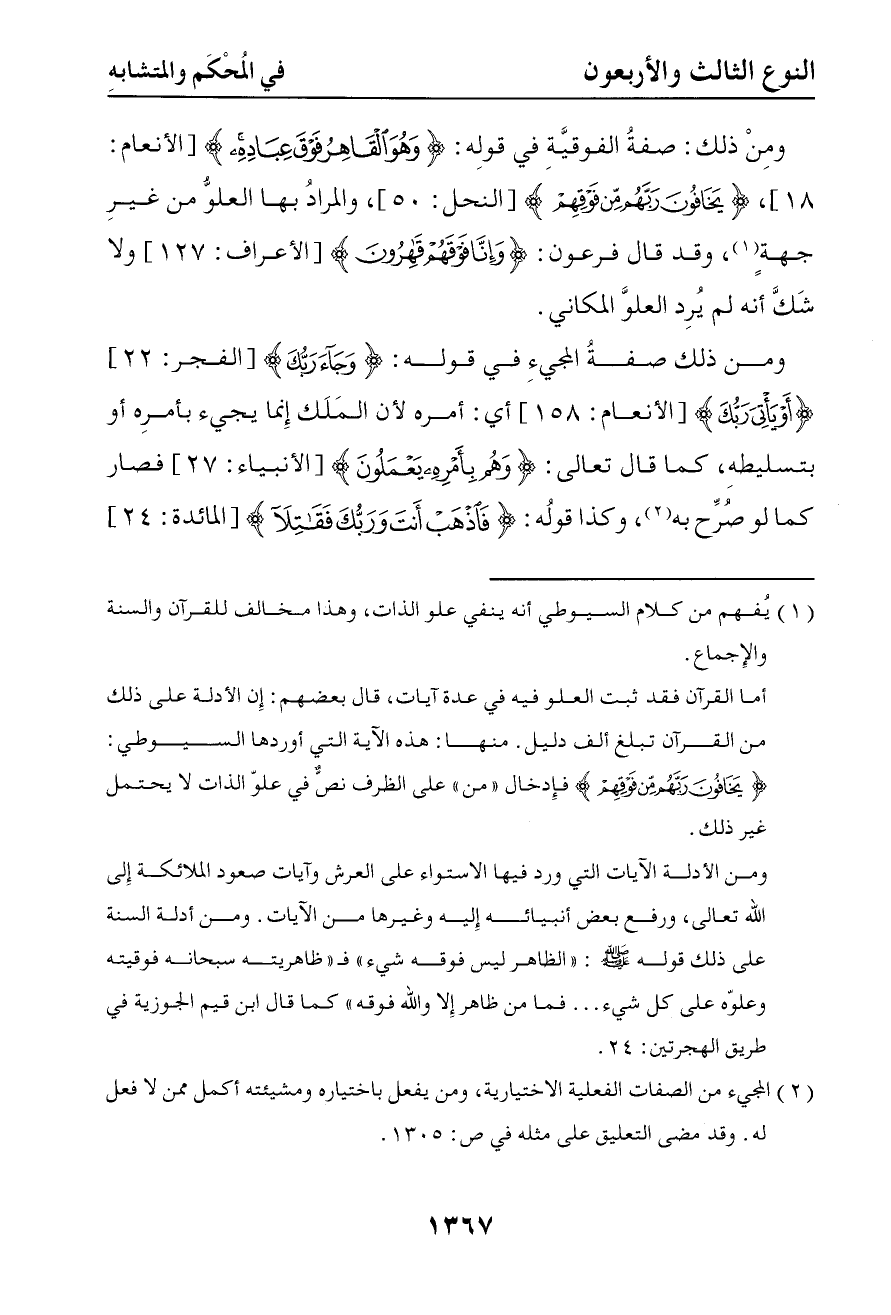 النوع الثالث والأربعون في المُحْكَم والمتشابهِ
ومِنْ ذلك: صفةُ الفوقيَّةِ في قوله: ﴿ وَهُوَ ٱلْقَاهِرُ فَوْقَ عِبَادِهِۦ ﴾ [الأنعام:
١٨]، ﴿ يَخَافُونَ رَبَّهُم مِّن فَوْقِهِمْ ﴾ [النحل: ٥٠]، والمرادُ بها العلوُّ من غيرِ
جهةٍ(١)، وقد قال فرعون: ﴿ وَإِنَّا فَوْقَهُمْ قَٰهِرُونَ ﴾ [الأعراف: ١٢٧] ولا
شَكَّ أنه لم يُرِد العلوَّ المكاني.
ومن ذلك صفةُ المجيءِ في قوله: ﴿ وَجَآءَ رَبُّكَ ﴾ [الفجر: ٢٢]
﴿ أَوْ يَأْتِىَ رَبُّكَ ﴾ [الأنعام: ١٥٨] أي: أمره لأن المَلَك إنما يجيء بأمرِه أو
بتسليطِه، كما قال تعالى: ﴿ وَهُم بِأَمْرِهِۦ يَعْمَلُونَ ﴾ [الأنبياء: ٢٧] فصار
كما لو صُرِّح به(٢)، وكذا قولُه: ﴿ فَٱذْهَبْ أَنتَ وَرَبُّكَ فَقَٰتِلَآ ﴾ [المائدة: ٢٤]
(١) يُفهم من كلام السيوطي أنه ينفي علو الذات، وهذا مخالف للقرآن والسنة
والإجماع.
أما القرآن فقد ثبت العلو فيه في عدة آيات، قال بعضهم: إن الأدلة على ذلك
من القرآن تبلغ ألف دليل. منها: هذه الآية التي أوردها السيوطي:
﴿ يَخَافُونَ رَبَّهُم مِّن فَوْقِهِمْ ﴾ فإدخال «من» على الظرف نصٌّ في علوّ الذات لا يحتمل
غير ذلك.
ومن الأدلة الآيات التي ورد فيها الاستواء على العرش وآيات صعود الملائكة إلى
الله تعالى، ورفع بعض أنبيائه إليه وغيرها من الآيات. ومن أدلة السنة
على ذلك قوله ﷺ : «الظاهر ليس فوقه شيء» فـ«ظاهريته سبحانه فوقيته
وعلوّه على كل شيء... فما من ظاهر إلا والله فوقه» كما قال ابن قيم الجوزية في
طريق الهجرتين: ٢٤.
(٢) المجيء من الصفات الفعلية الاختيارية، ومن يفعل باختياره ومشيئته أكمل ممن لا فعل
له. وقد مضى التعليق على مثله في ص: ١٣٠٥.
١٣٦٧